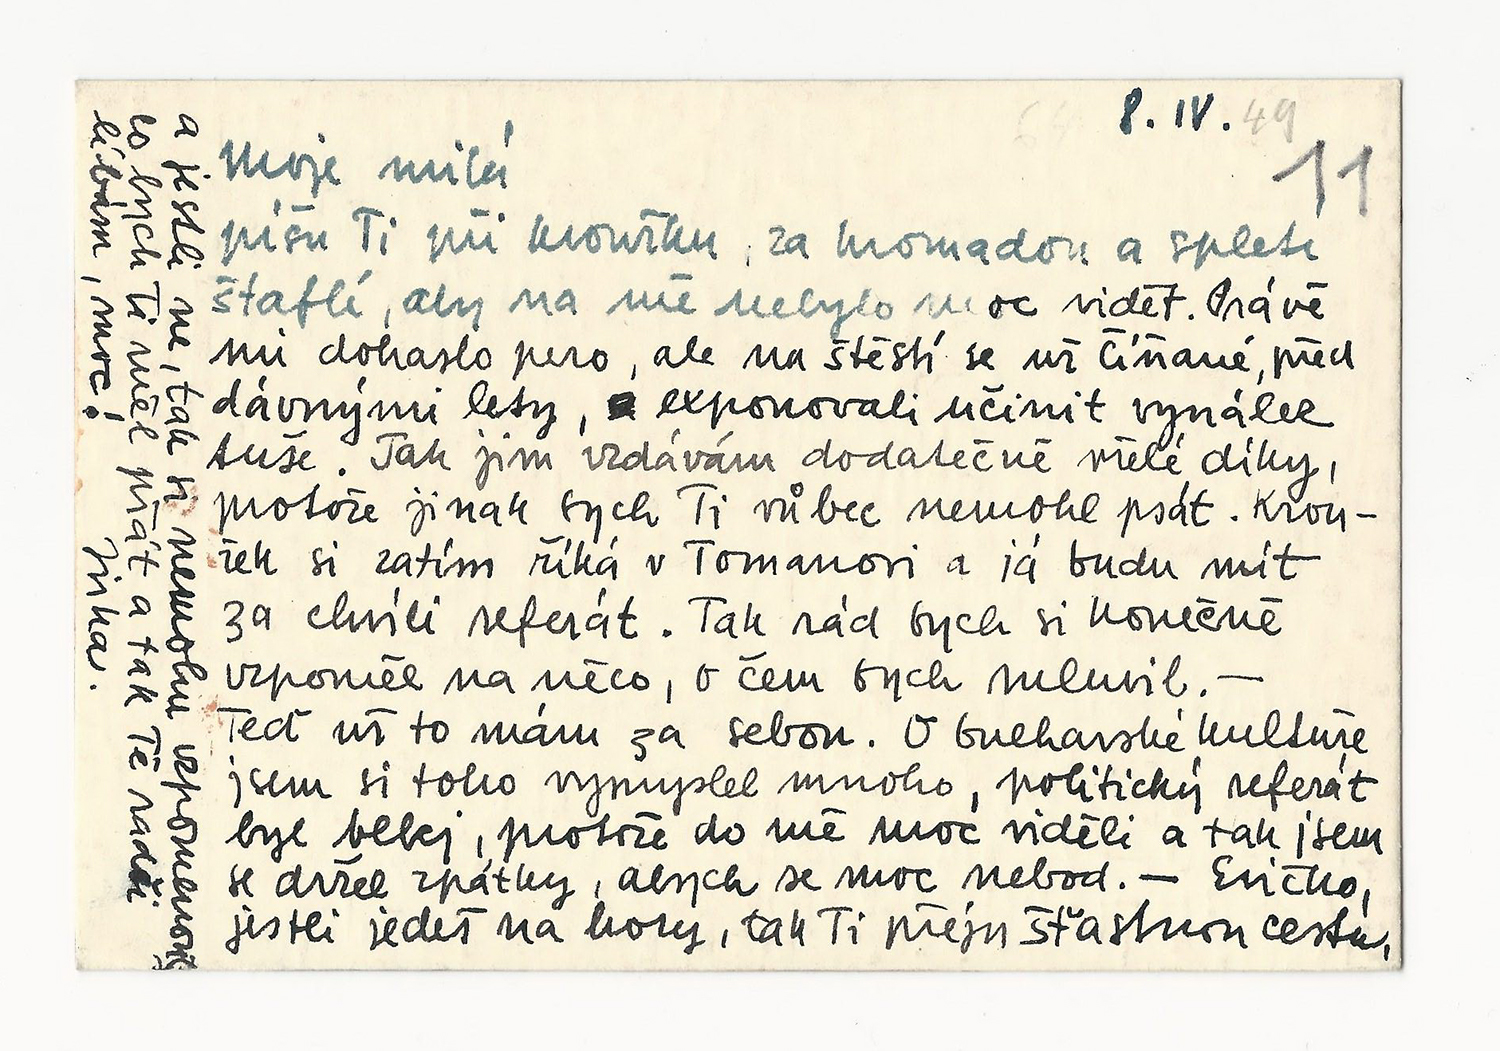 8. IV. 49
11
Moje milá
píšu Ti při kroužku, za hromadou a spletí
štaflí, aby na mě nebylo moc vidět. Právě
mi dohaslo pero, ale na štěstí se už Číňané, před
dávnými lety, exponovali učinit vynález
tuše. Tak jim vzdávám dodatečně vřelé díky,
protože jinak bych Ti vůbec nemohl psát. Krou-
žek si zatím říká v Tomanovi a já budu mít
za chvíli referát. Tak rád bych si konečně
vzpoměl na něco, o čem bych mluvil. —
Teď už to mám za sebou. O bulharské kultuře
jsem si toho vymyslel mnoho, politický referát
byl blbej, protože do mě moc viděli a tak jsem
se držel zpátky, abych se moc nebod. — Evičko,
jestli jedeš na hory, tak Ti přeju šťastnou cestu,
a jestli ne, tak si nemohu vzpomenout
co bych Ti měl přát a tak Tě radši
líbám, moc!
Jirka.